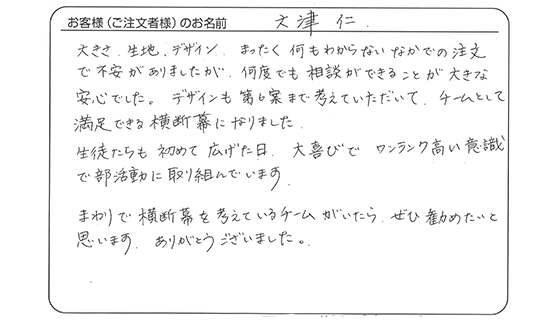 お客様（ご注文者様）のお名前　文津 仁
大きさ、生地、デザイン、まったく何もわからないなかでの注文
で不安がありましたが、何度でも相談ができることが大きな
安心でした。デザインも第6案まで考えていただいて、チームとして
満足できる横断幕になりました。
生徒たちも初めて広げた日、大喜びでワンランク高い意識
で部活動に取り組んでいます。
まわりで横断幕を考えているチームがいたら、ぜひ勧めたいと
思います。ありがとうございました。